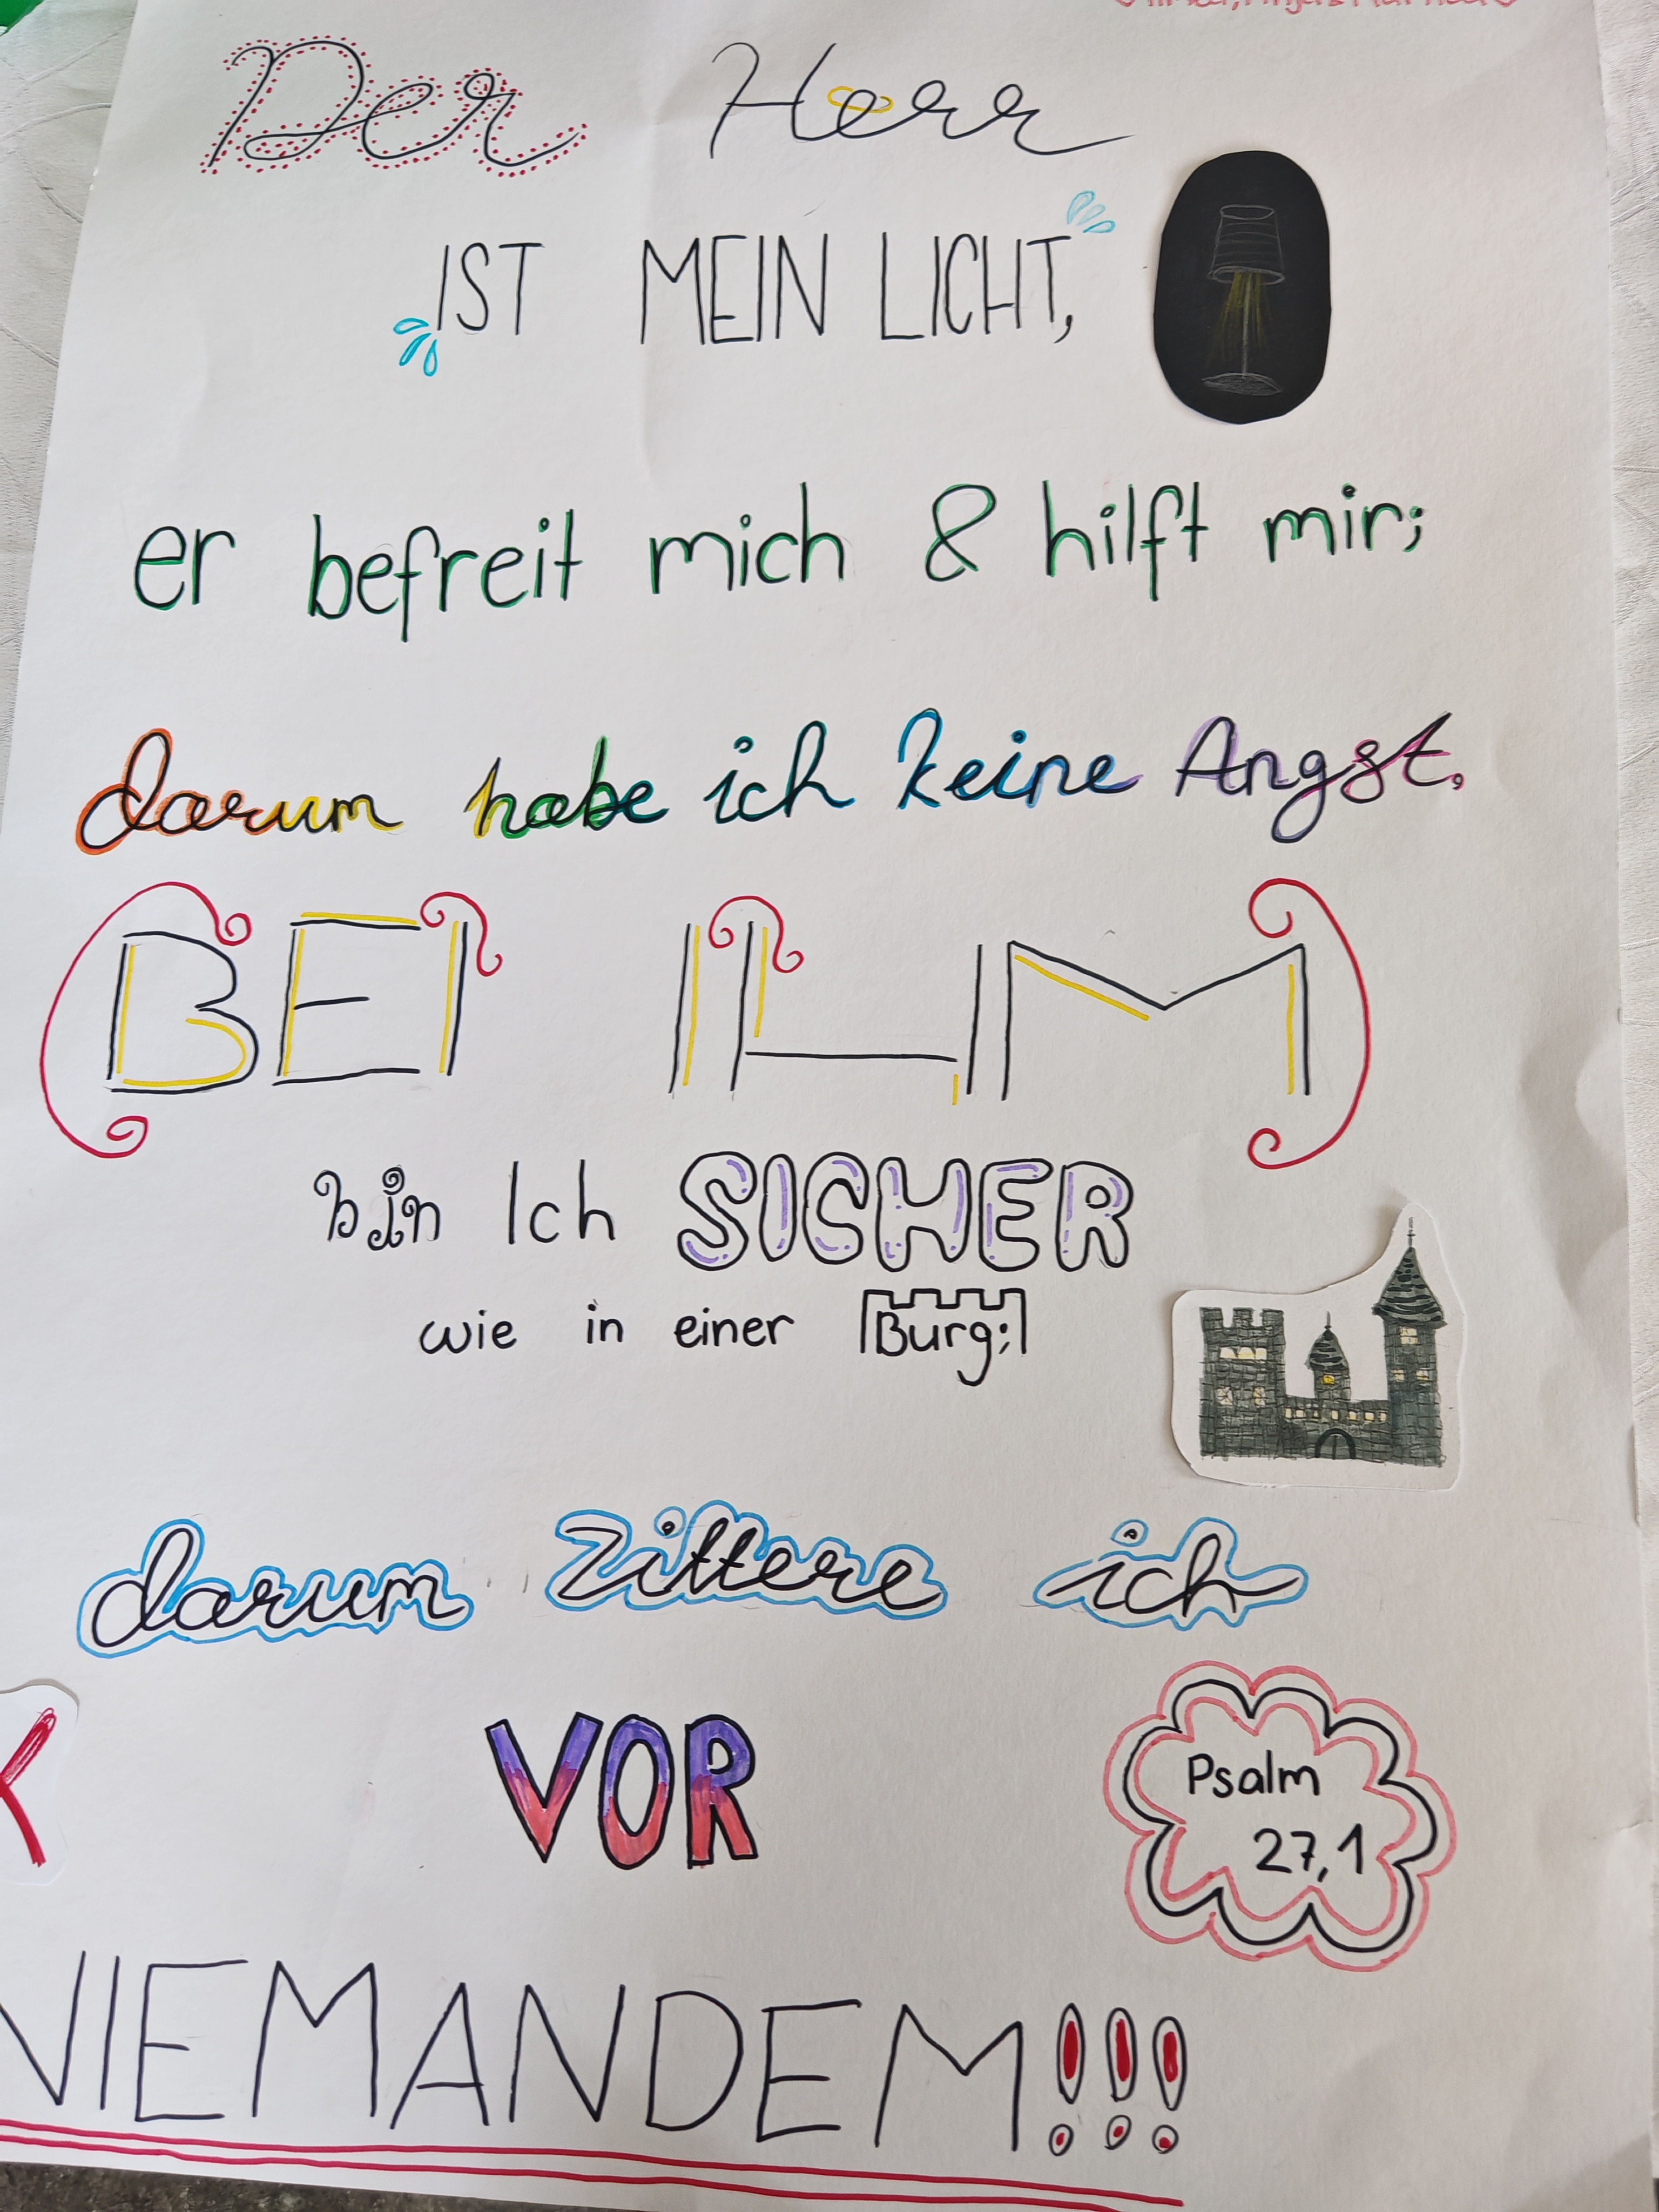 Der Herr
IST MEIN LICHT,
er befreit mich & hilft mir;
darum habe ich keine Angst.
BEI IHM
bin Ich SICHER
wie in einer Burg;
darum zittere ich
VOR
Psalm
27,1
NIEMANDEM!!!